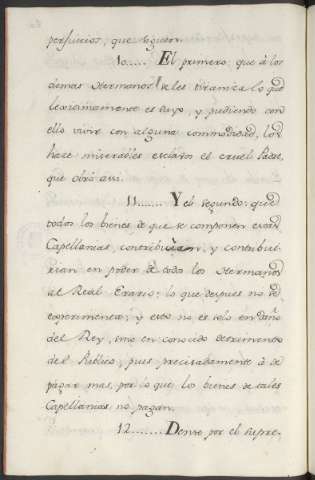 perjuicios, que siguen.
10...... El primero: que à los
demas Hermanos se les tiraniza lo que
lexitimamente es suyo, y pudiendo con
ello vivir con alguna commodidad, los
haze miserables esclavos el cruel Padre,
que obró assi.
11...... Y el segundo: que
todos los bienes, de que se componen estas
Capellanias, contribuían, y contribui-
rian en poder de todos los Hermanos
al Real Erario: lo que despues no se
experimenta; y esto no es solo en daño
del Rey, sino en conocido detrimento
del Publico, pues precisadamente à de
pagar mas, por lo que los bienes de tales
Capellanias no pagan.
12...... Dense por el Supre-